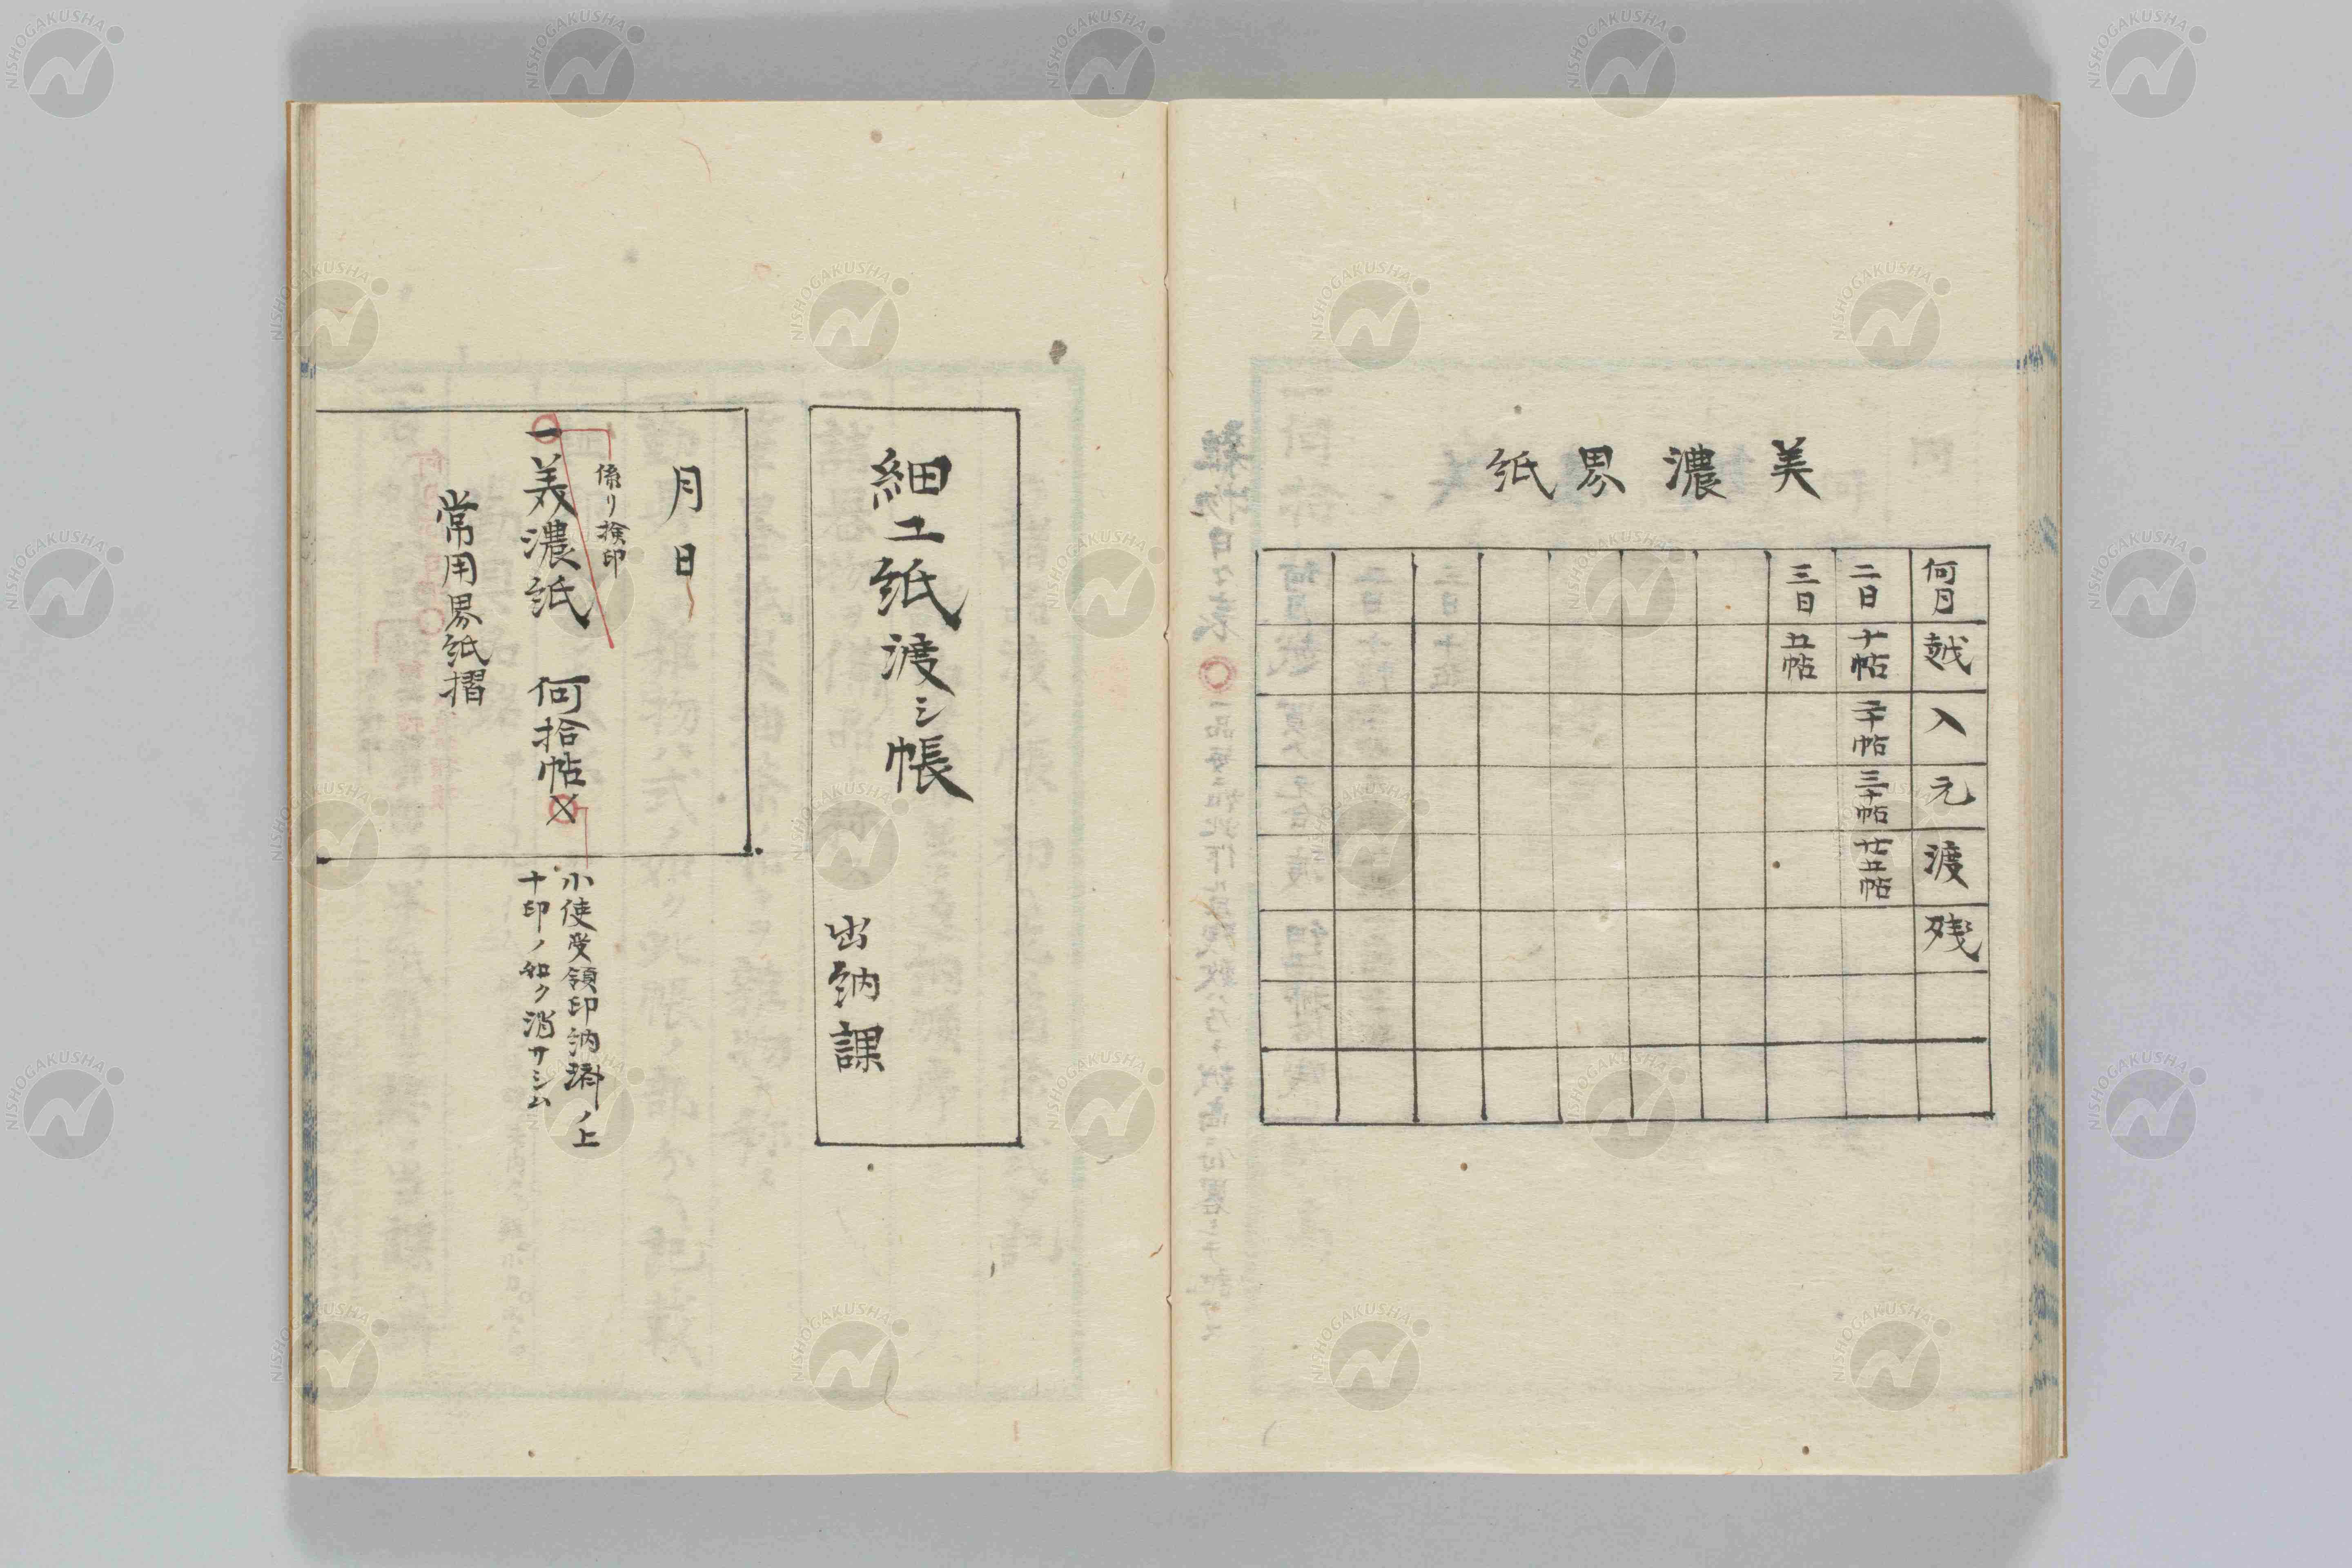 美濃界紙
何月 越 入 元 渡 残
二日 十帖 二十帖 三十帖 廿五帖
三日 五帖
細工紙渡シ帳
出納課
月日
係リ検印
一美濃紙 何拾帖〆
常用界紙摺
小使受領印納済ノ上
十印ノ如ク消サシム
NISHOGAKUSHA